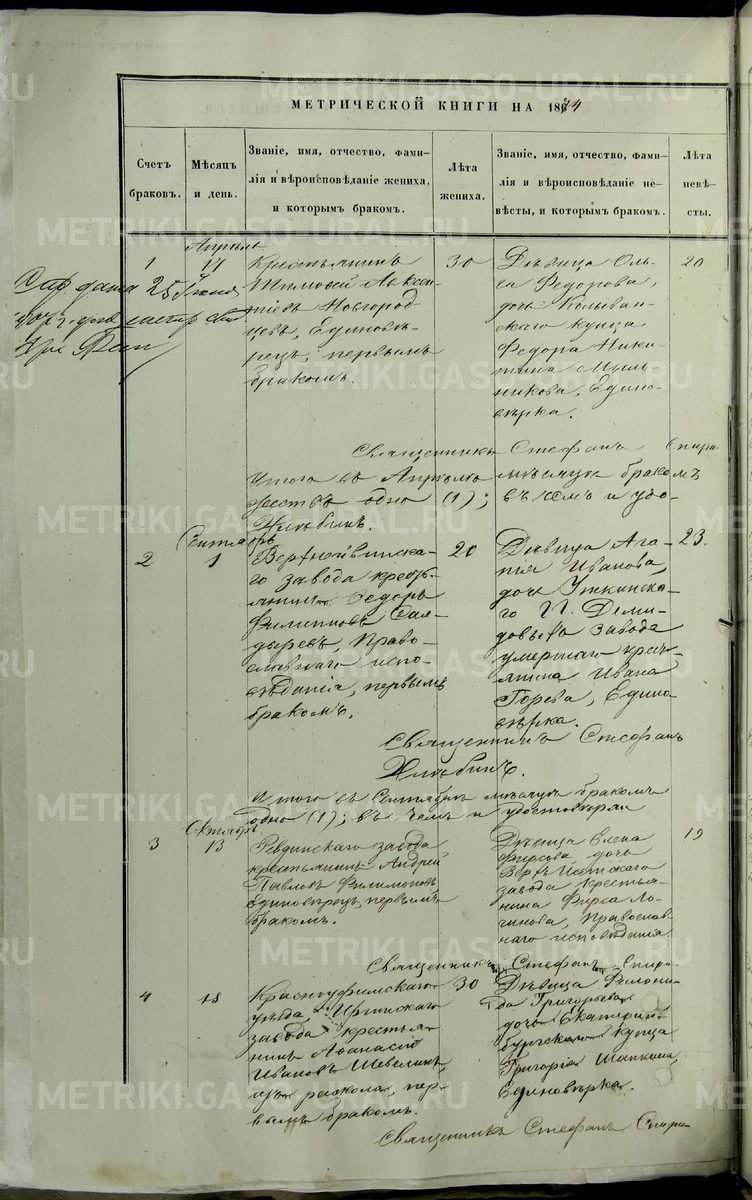 МЕТРИЧЕСКОЙ КНИГИ НА 1874
Счетъ браковъ.
Мѣсяцъ и день.
Званіе, имя, отчество, фами-
лія и вѣроисповѣданіе жениха,
и которымъ бракомъ.
Лѣта жениха.
Званіе, имя, отчество, фами-
лія и вѣроисповѣданіе не-
вѣсты, и которымъ бракомъ.
Лѣта невѣ-
сты.
Апрѣль
1
17
Крестьянинъ
Тимофей Алексѣ-
Новгород-
цевъ, Единовѣ-
рецъ, первымъ
бракомъ.
30
Дѣвица Оль-
га Федорова,
дочь Колыван-
скаго купца
Федора Ники-
тина Мыль-
никова, Едино-
вѣрка.
20
дана 25
Священникъ Стефанъ
Итого въ Апрѣлѣ мѣсяцѣ бракомъ
одно (1); въ чемъ и удо-
Сентябрь
2
1
завода кресть-
янинъ Федоръ
Филипповъ
Право-
славнаго испо-
вѣданія, первымъ
бракомъ.
20
Дѣвица Ага-
пія Иванова,
дочь Уткинска-
го Г. Деми-
довыхъ завода
умершаго крест-
янина Ивана
Горева, Едино-
вѣрка.
23.
Священникъ Стефанъ
Итого въ Сентябрѣ мѣсяцѣ бракомъ
одно (1); въ чемъ и удостовѣряю
Октябрь
3
13
Ревдинскаго завода
крестьянинъ Андрей
Павловъ Филимоновъ,
Единовѣрецъ, первымъ
бракомъ.
Дѣвица Елена
Фирсова, дочь
Верхъ Исетскаго
завода Крестья-
нина Фирса Ло-
гинова, Православ-
наго исповѣданія.
19
Священникъ Стефанъ Спири-
4
18
Красноуфимскаго
уѣзда, Иргинскаго
завода крестья-
нинъ Афанасій
Ивановъ Шевелинъ,
изъ раскола, пер-
вымъ бракомъ.
30
Дѣвица
Григорьева
дочь Екатерин-
бургскаго купца
Григорія Шапкина,
Единовѣрка.
Священникъ Стефанъ Спири-
METRIKI.GASO-URAL.RU